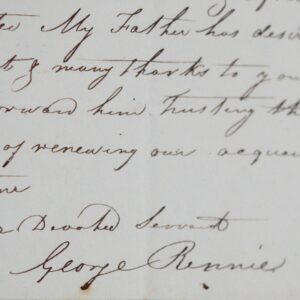 My Father has desir
t & many thanks to you
orward him trusting th
of renewing our acquai
me
r Devoted Servant
George Rennie